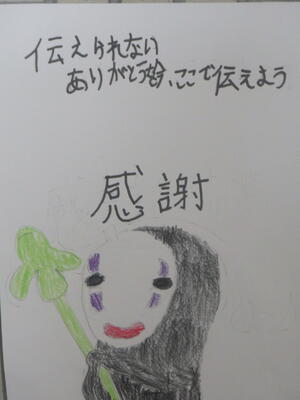 伝えきれない
ありがとうを今、ここで伝えよう
感謝